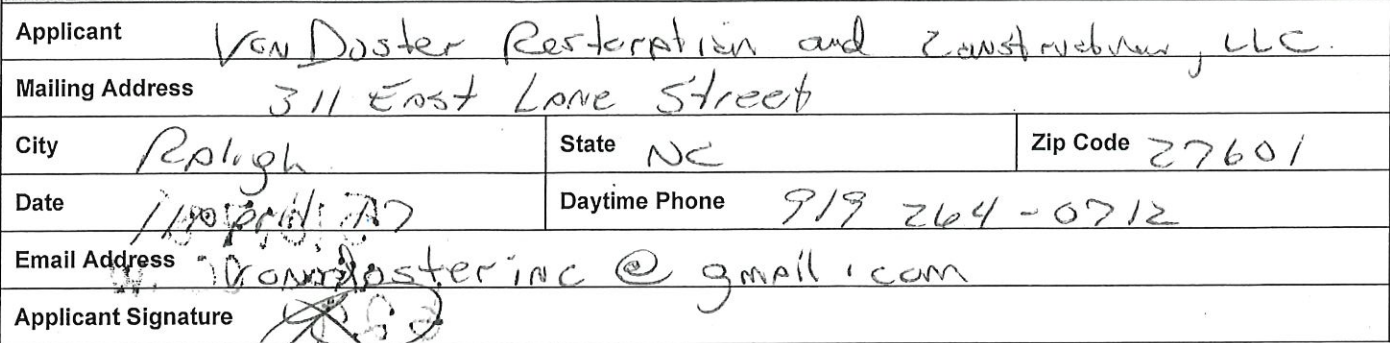 Applicant VonDoster Restoration and Construction, LLC.
Mailing Address 311 East Lane Street
City Raleigh State NC Zip Code 27601
Date Daytime Phone 919 264-0712
Email Address vondosterinc@gmail.com
Applicant Signature